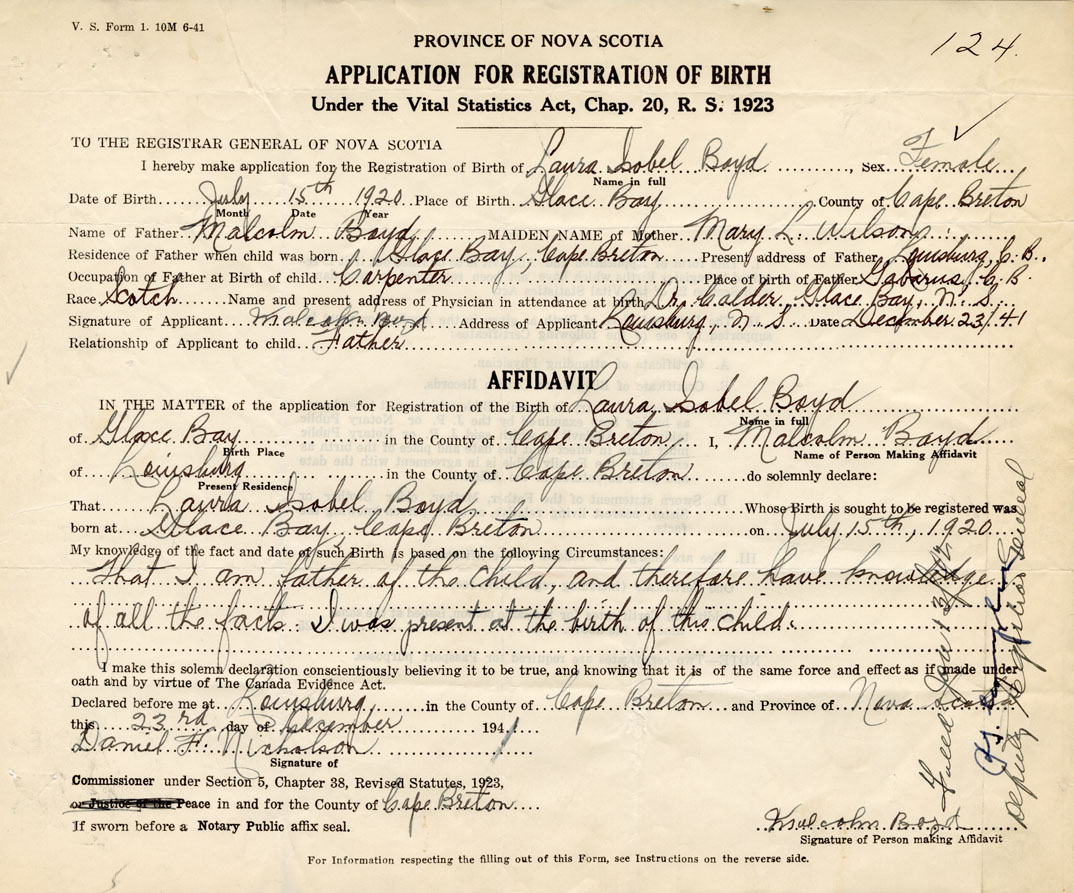 V. S. Form 1. 10M 6-41
124.
PROVINCE OF NOVA SCOTIA
APPLICATION FOR REGISTRATION OF BIRTH
Under the Vital Statistics Act, Chap. 20, R. S. 1923
TO THE REGISTRAR GENERAL OF NOVA SCOTIA
I hereby make application for the Registration of Birth of Laura Isobel Boyd, Sex Female
Name in full
Date of Birth July 15th 1920 Place of Birth Glace Bay, County of Cape Breton
Month Date Year
Name of Father Malcolm Boyd MAIDEN NAME of Mother Mary L. Wilson
Residence of Father when child was born Glace Bay, Cape Breton Present address of Father Louisburg, C. B.
Occupation of Father at Birth of child Carpenter Place of birth of Father Gabarus, C. B.
Race Scotch Name and present address of Physician in attendance at birth Dr. Calder, Glace Bay, N. S.
Signature of Applicant Malcolm Boyd Address of Applicant Louisburg, N. S. Date December 23/41
Relationship of Applicant to child Father
AFFIDAVIT
IN THE MATTER of the application for Registration of the Birth of Laura Isobel Boyd
Name in full
of Glace Bay in the County of Cape Breton I, Malcolm Boyd
Birth Place Name of Person Making Affidavit
of Louisburg in the County of Cape Breton do solemnly declare:
Present Residence
That Laura Isobel Boyd Whose Birth is sought to be registered was
born at Glace Bay, Cape Breton on July 15th, 1920
My knowledge of the fact and date of such Birth is based on the following Circumstances:
That I am father of the child, and therefore have knowledge
of all the facts. I was present at the birth of this child.
I make this solemn declaration conscientiously believing it to be true, and knowing that it is of the same force and effect as if made under
oath and by virtue of The Canada Evidence Act.
Declared before me at Louisburg in the County of Cape Breton and Province of Nova Scotia
this 23rd day of December 1941
Daniel F. Nicholson
Signature of
Commissioner under Section 5, Chapter 38, Revised Statutes, 1923,
or Justice of the Peace in and for the County of Cape Breton
If sworn before a Notary Public affix seal.
Malcolm Boyd
Signature of Person making Affidavit
For Information respecting the filling out of this Form, see Instructions on the reverse side.
Deputy Registrar General